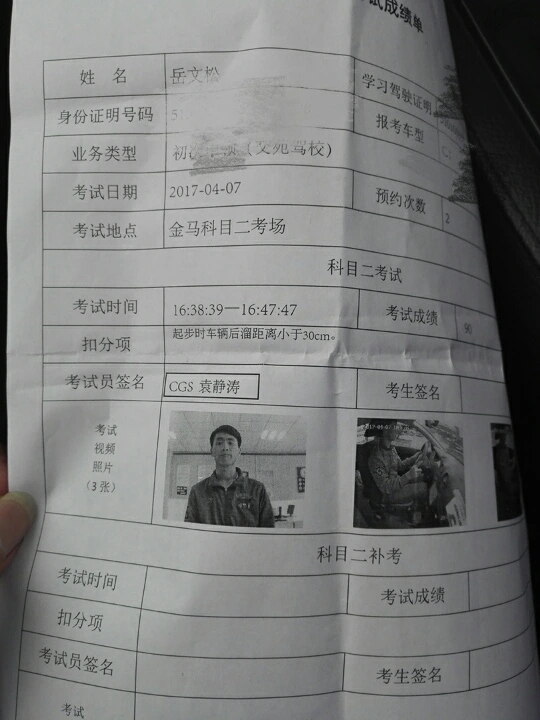 试成绩单
姓 名 岳文松 学习驾驶证明
身份证明号码 51 报考车型
业务类型 初 （文苑驾校）
考试日期 2017-04-07 预约次数 2
考试地点 金马科目二考场
科目二考试
考试时间 16:38:39—16:47:47 考试成绩 90
扣分项 起步时车辆后溜距离小于30cm。
考试员签名 CGS 袁静涛 考生签名
考试
视频
照片
（3 张）
科目二补考
考试时间 考试成绩
扣分项
考试员签名 考生签名
考试